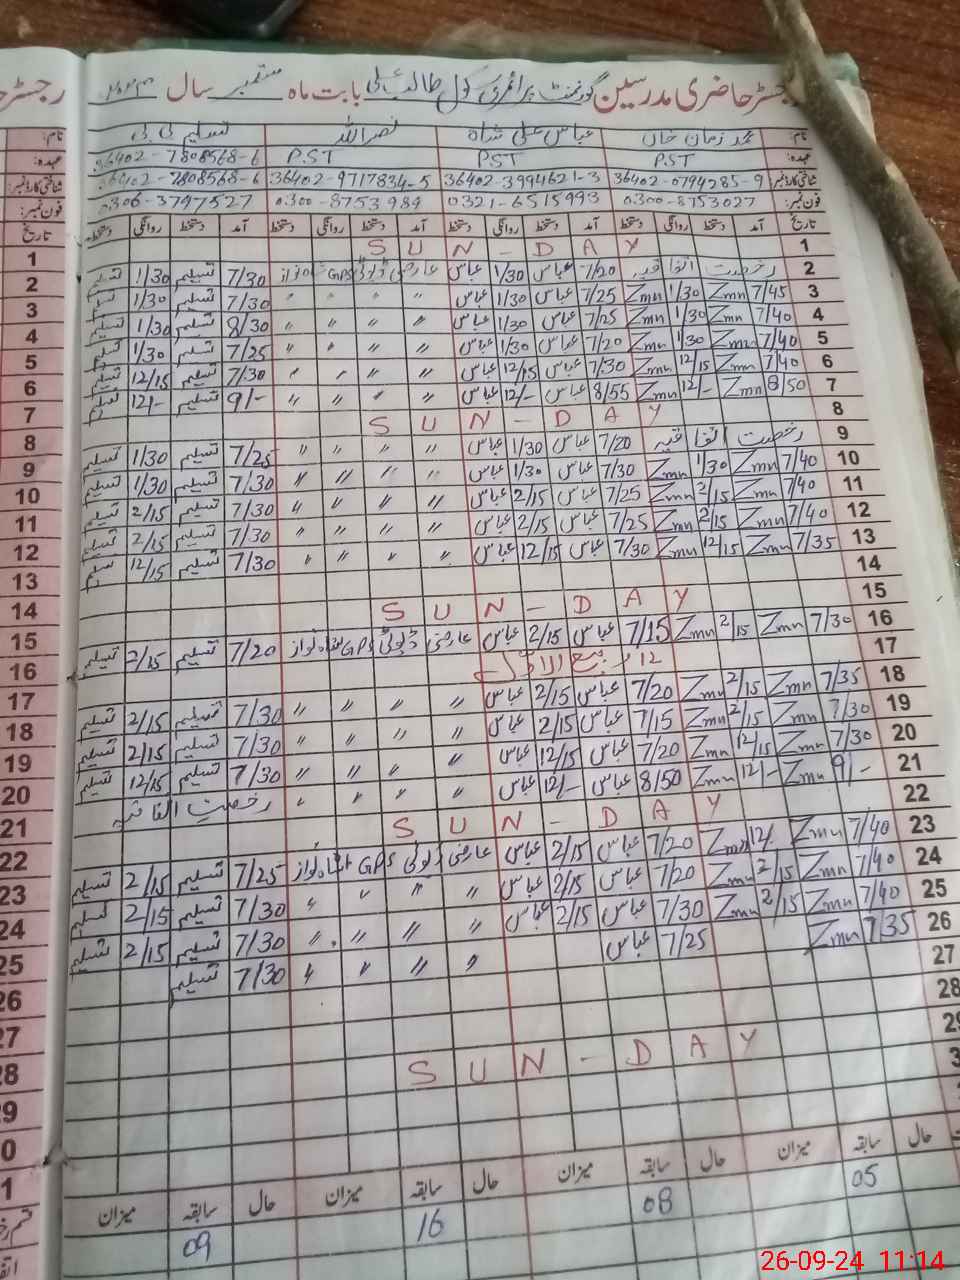 رجسٹر حاضری مدرسین گورنمنٹ پرائمری سکول طالب بابت ماہ ستمبر سال
نام: محمد زمان خان عباس علی شاہ نصر اللہ تسلیم بی بی
عہدہ: P.ST P.ST P.ST 36402-7808568-6
شناختی کارڈ نمبر: 36402-0794285-9 36402-3994621-3 36402-9717834-5 36402-7808568-6
فون نمبر: 0300-8753027 0321-6515993 0300-8753984 0306-3797527
تاریخ آمد دستخط روانگی دستخط آمد دستخط روانگی دستخط آمد دستخط روانگی دستخط آمد دستخط روانگی دستخط
1 SUN-DAY
2 رخصت اتفاقیہ 7/20 عباس 1/30 عباس عارضی ڈیوٹی GPS شاہنواز 7/30 تسلیم 1/30 تسلیم
3 7/45 Zmn 1/30 Zmn 7/25 عباس 1/30 عباس " " " " 7/30 تسلیم 1/30 تسلیم
4 7/40 Zmn 1/30 Zmn 7/25 عباس 1/30 عباس " " " " 8/30 تسلیم 1/30 تسلیم
5 7/40 Zmn 1/30 Zmn 7/20 عباس 1/30 عباس " " " " 7/25 تسلیم 1/30 تسلیم
6 7/40 Zmn 12/15 Zmn 7/30 عباس 12/15 عباس " " " " 7/30 تسلیم 12/15 تسلیم
7 8/50 Zmn 12/- Zmn 8/55 عباس 12/- عباس " " " " 9/- تسلیم 12/- تسلیم
8 SUN-DAY
9 رخصت اتفاقیہ 7/20 عباس 1/30 عباس " " " " 7/25 تسلیم 1/30 تسلیم
10 7/40 Zmn 1/30 Zmn 7/30 عباس 1/30 عباس " " " " 7/30 تسلیم 1/30 تسلیم
11 7/40 Zmn 2/15 Zmn 7/25 عباس 2/15 عباس " " " " 7/30 تسلیم 2/15 تسلیم
12 7/40 Zmn 2/15 Zmn 7/25 عباس 2/15 عباس " " " " 7/30 تسلیم 2/15 تسلیم
13 7/35 Zmn 12/15 Zmn 7/30 عباس 12/15 عباس " " " " 7/30 تسلیم 12/15 تسلیم
14
15 SUN-DAY
16 7/30 Zmn 2/15 Zmn 7/15 عباس 2/15 عباس عارضی ڈیوٹی GPS شاہنواز 7/20 تسلیم 2/15 تسلیم
17 12 ربیع الاول
18 7/35 Zmn 2/15 Zmn 7/20 عباس 2/15 عباس " " " " 7/30 تسلیم 2/15 تسلیم
19 7/30 Zmn 2/15 Zmn 7/15 عباس 2/15 عباس " " " " 7/30 تسلیم 2/15 تسلیم
20 7/30 Zmn 12/15 Zmn 7/20 عباس 12/15 عباس " " " " 7/30 تسلیم 12/15 تسلیم
21 9/- Zmn 12/- Zmn 8/50 عباس 12/- عباس " " " " رخصت اتفاقیہ
22 SUN-DAY
23 7/40 Zmn 12/ Zmn 7/20 عباس 2/15 عباس عارضی ڈیوٹی GPS شاہنواز 7/25 تسلیم 2/15 تسلیم
24 7/40 Zmn 2/15 Zmn 7/20 عباس 2/15 عباس " " " " 7/30 تسلیم 2/15 تسلیم
25 7/40 Zmn 2/15 Zmn 7/30 عباس 2/15 عباس " " " " 7/30 تسلیم 2/15 تسلیم
26 7/35 Zmn 7/25 عباس " " " " 7/30 تسلیم
27
28
29 SUN-DAY
حال سابقہ میزان حال سابقہ میزان حال سابقہ میزان حال سابقہ میزان
05 08 16 09
26-09-24 11:14